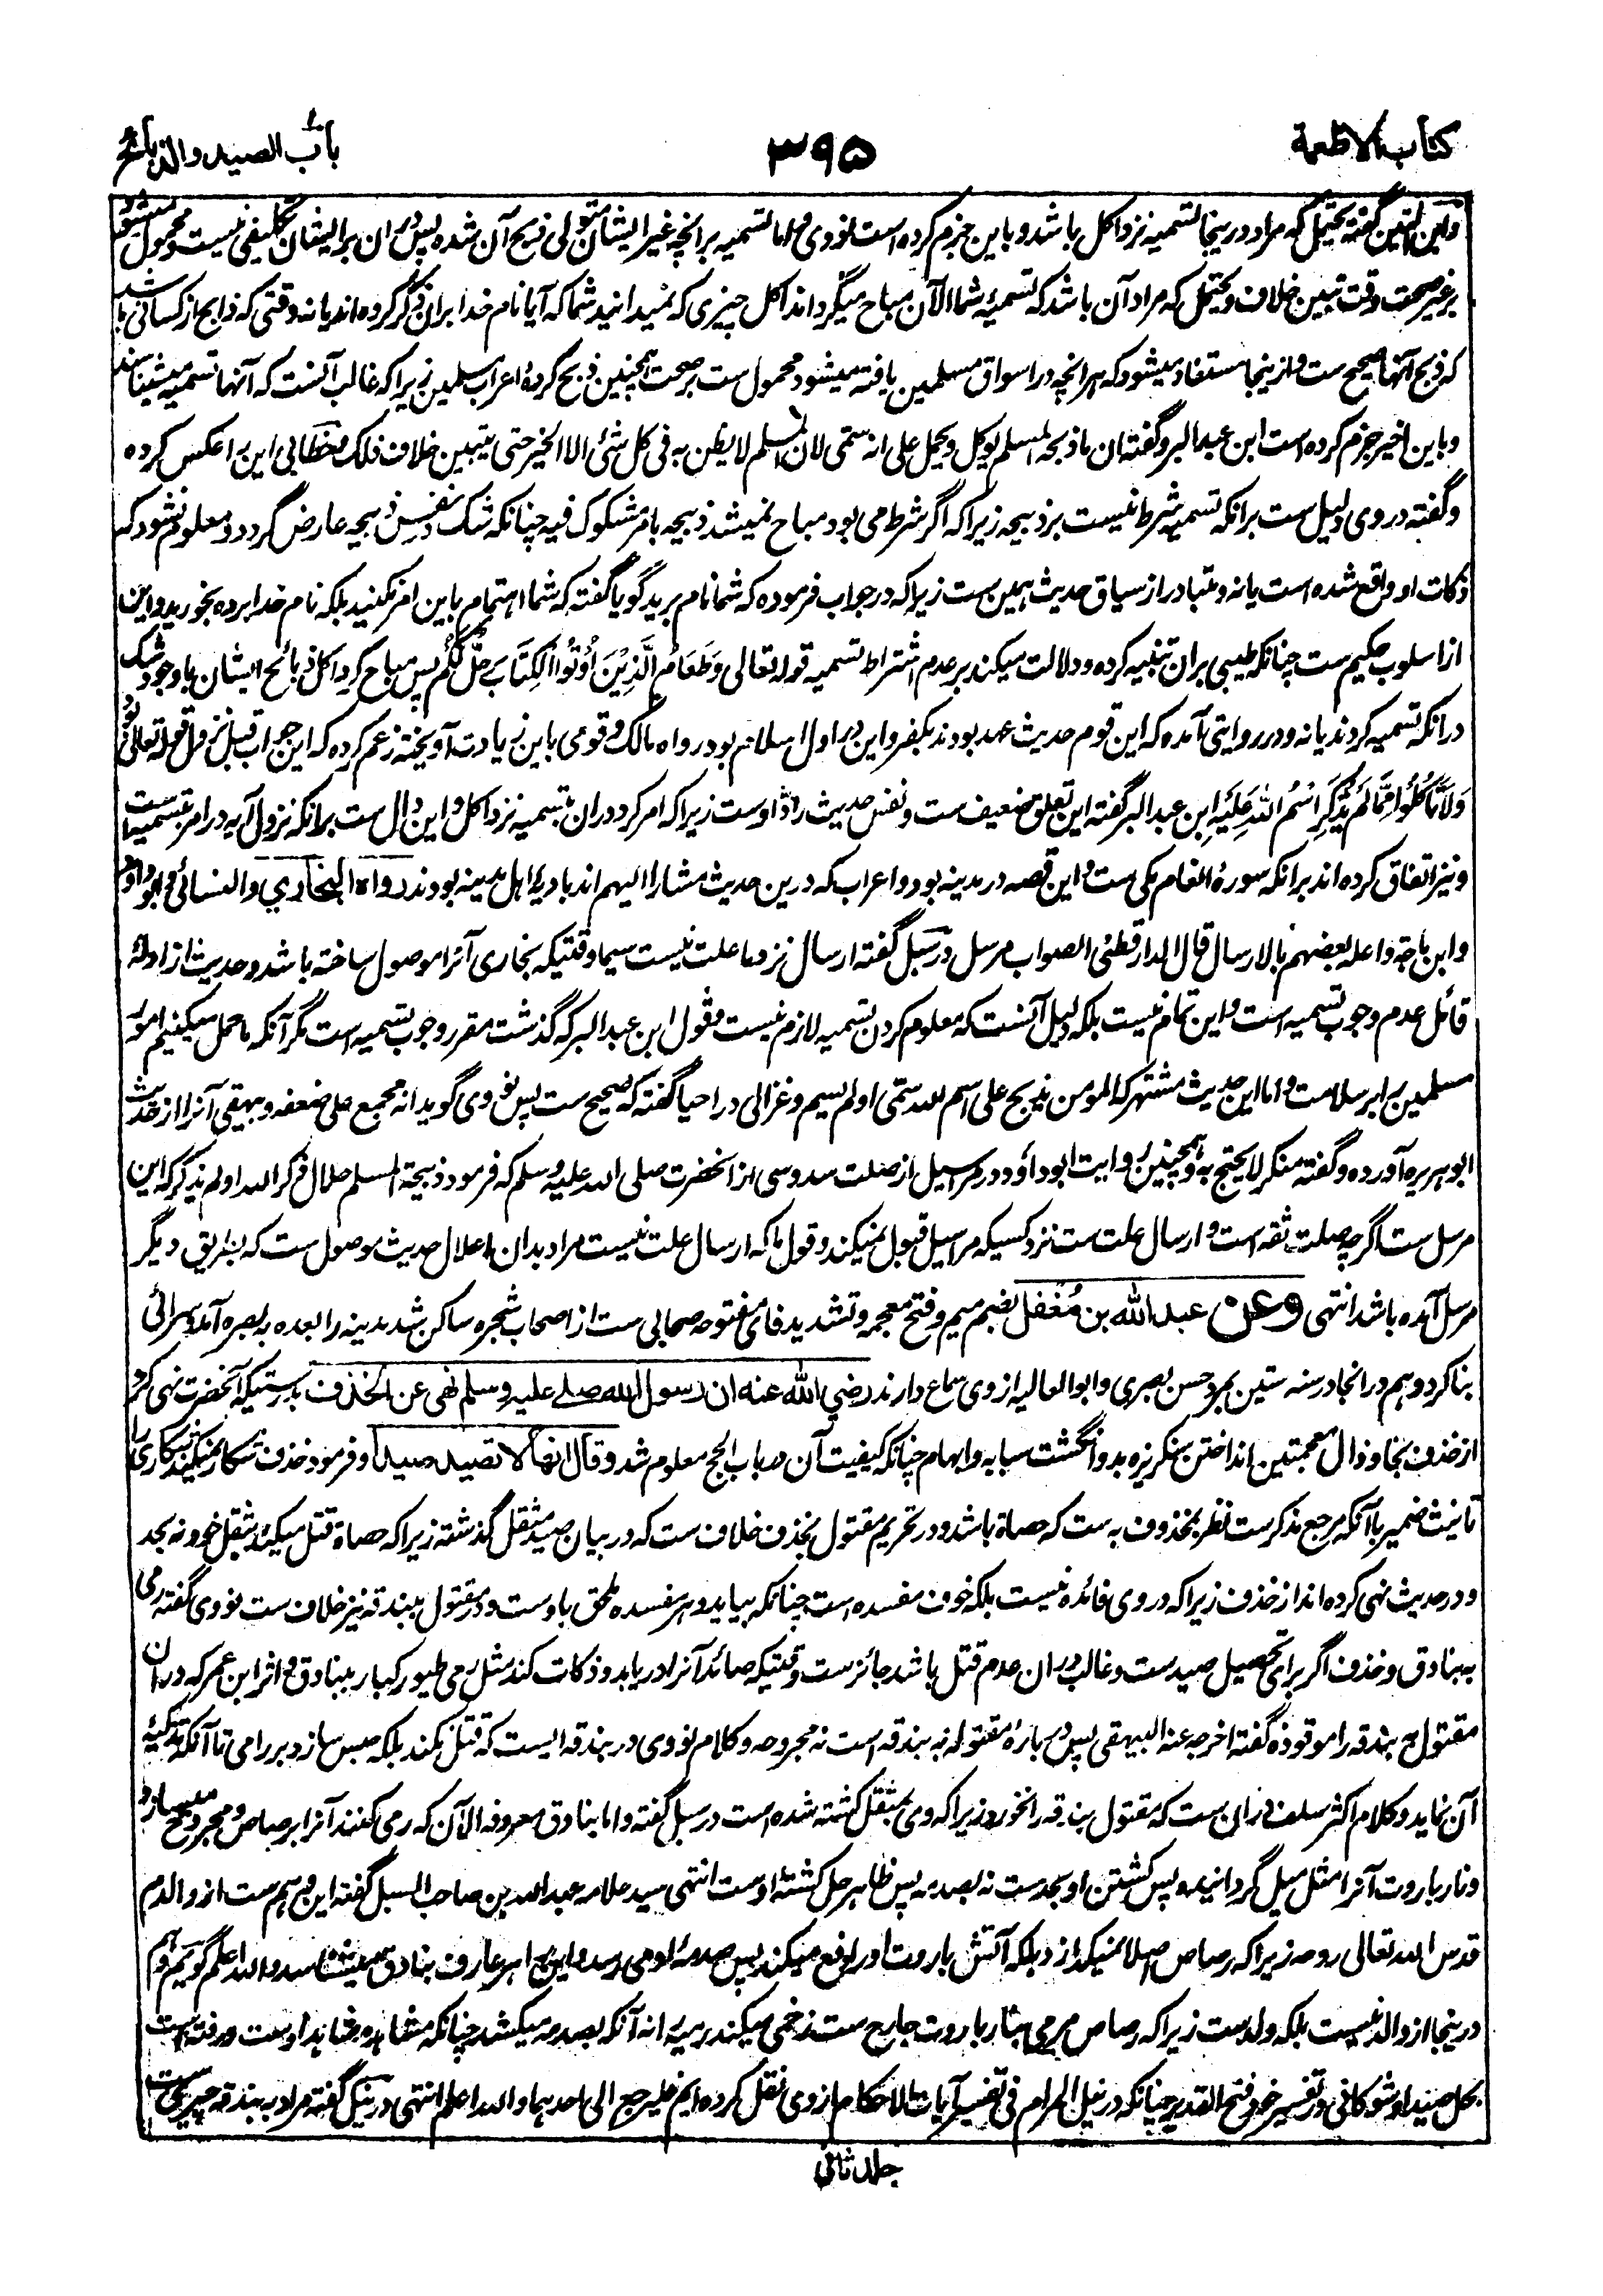 كتاب الاطعمة
۳۹۵
باب الصيد والذبائح
وابن التین گفته یحتمل که مراد درینجا تسمیه نزد اکل باشد و باین جزم کرده است نووی و اما تسمیه بر آنچه غیر ایشان متولی ذبح آن شده پس دران بر ایشان تکلیفی نیست و محمول میشود
بر غیر صحت وقت تبین خلاف و یحتمل که مراد آن باشد که تسمیهٔ شما الآن مباح میگرداند اکل چیزی که نمیدانید شما که آیا نام خدا بران ذکر کرده اند یا نه وقتی که ذابح از کسانی باشد
که ذبح آنها صحیح ست و ازینجا مستفاد میشود که هر آنچه در اسواق مسلمین یافته میشود محمول ست بر صحت همچنین ذبح کردهٔ اعراب مسلمین زیرا که غالب آنست که آنها تسمیه میشناسند
و باین اخیر جزم کرده است ابن عبد البر و گفته ان ما ذبحه المسلم یوکل و یحمل علی انه سمّی لان المسلم لا یظن به فی کل شئ الا الخیر حتی یتبین خلاف ذلک و خطابی این را عکس کرده
و گفته در وی دلیل ست بر آنکه تسمیه شرط نیست بر ذبیحه زیرا که اگر شرط می بود مباح نمیشد ذبیحه بامر مشکوک فیه چنانکه شک در نفس ذبیحه عارض گردد و معلوم نشود که
ذکات او واقع شده است یا نه و متبادر از سیاق حدیث همین ست زیرا که در جواب فرموده که شما نام برید گویا گفته که شما اهتمام باین امر نکنید بلکه نام خدا برده بخورید و این
از اسلوب حکیم ست چنانکه طیبی بران تنبیه کرده و دلالت میکند بر عدم اشتراط تسمیه قوله تعالی وَطَعَامُ الَّذِيْنَ اُوْتُوا الْكِتَابَ حِلٌّ لَّكُمْ پس مباح کرد اکل ذبائح ایشان با وجود شک
در آنکه تسمیه کردند یا نه و در روایتی آمده که این قوم حدیث عهد بودند بکفر و این در اول اسلام بود رواه مالک و قومی باین زیادت آویخته زعم کرده که این جواب قبل نزول قوله تعالی بود
وَلَا تَأْكُلُوْا مِمَّا لَمْ يُذْكَرِ اسْمُ اللهِ عَلَيْهِ ابن عبد البر گفته این تعلق ضعیف ست و نفس حدیث رادّ اوست زیرا که امر کرد دران بتسمیه نزد اکل و این دال ست بر آنکه نزول آیه در امر بتسمیه است
و نیز اتفاق کرده اند بر آنکه سورهٔ انعام مکی ست و این قصه در مدینه بود و اعراب که درین حدیث مشار الیهم اند بادیهٔ اهل مدینه بودند رواه البخاري والنسائی و ابو داود
و ابن ماجه و اعله بعضهم بالارسال قال الدارقطنی الصواب مرسل در سبل گفته ارسال نزد ما علت نیست سیما وقتیکه بخاری آنرا موصول ساخته باشد و حدیث از ادلهٔ
قائل عدم وجوب تسمیه است و این تمام نیست بلکه دلیل آنست که معلوم کردن تسمیه لازم نیست و قول ابن عبد البر که گذشت مقرر وجوب تسمیه است مگر آنکه ما حمل میکنیم امور
مسلمین را بر سلامت و اما این حدیث مشتهر که المومن یذبح علی اسم الله سمّی او لم یسم و غزالی در احیا گفته که صحیح ست پس نووی گوید انه مجمع علی ضعفه و بیهقی آنرا از حدیث
ابو هریره آورده و گفته منکر لا یحتج به و همچنین روایت ابو داؤد در مراسیل از صلت سدوسی از آنحضرت صلی الله علیه وسلم که فرمود ذبیحة المسلم حلال ذکر الله او لم یذکر که این
مرسل ست اگرچه صلت ثقه است و ارسال علت ست نزد کسیکه مراسیل قبول نمیکند و قول ما که ارسال علت نیست مراد بدان اعلال حدیث موصول ست که بطریق دیگر
مرسل آمده باشد انتهی وعن عبد الله بن مُغَفل بضم میم و فتح معجمه و تشدید فای مفتوحه صحابی ست از اصحاب شجره ساکن شد مدینه را بعده به بصره آمد و سرائی
بنا کرد و هم در انجا در سنه ستین بمرد حسن بصری و ابو العالیه از وی سماع دارند رضي الله عنه ان رسول الله صلے عليه وسلم نهی عن الخذف بدرستیکه آنحضرت نهی کرد
از خذف بخا و ذال معجمتین انداختن سنگریزه بدو انگشت سبابه و ابهام چنانکه کیفیت آن در باب الحج معلوم شد وقال انها لا تصيد صيدا و فرمود خذف شکار نمیکند شکاری را
تانیث ضمیر با آنکه مرجع مذکر ست نظر بمخذوف به ست که حصاة باشد و در تحریم مقتول بخذف خلاف ست که در بیان صید مثقل گذشته زیرا که حصاة قتل میکند بثقل خود نه بحد
و در حدیث نهی کرده اند از خذف زیرا که در وی فائده نیست بلکه خوف مفسده است چنانکه بیاید و هر مفسده ملحق باوست و در مقتول ببندقه نیز خلاف ست نووی گفته رمی
به بنادق و خذف اگر برای تحصیل صید ست و غالب دران عدم قتل باشد جائز ست وقتیکه صائد آنرا دریابد و ذکات کند مثل رمی طیور کبار ببنادق و اثر ابن عمر که دران
مقتول به بندقه را موقوذه گفته اخرجه عنه البیهقی پس در بارهٔ مقتوله به بندقه است نه مجروحه و کلام نووی در بندقه ایست که قتل نکند بلکه حبس سازد بر رامی تا آنکه تذکیهٔ
آن نماید و کلام اکثر سلف دران ست که مقتول بندقه را نخورد زیرا که وی بمثقل کشته شده است در سبل گفته و اما بنادق معروفه الآن که رمی کنند آنرا برصاص و مجروح میسازد
و نار باروت آنرا مثل میل گردانیده پس کشتن او بحد ست نه بصدمه پس ظاهر حل کشتهٔ اوست انتهی سید علامه عبد الله بن صاحب السبل گفته این وهم ست از والدم
قدس الله تعالی روحه زیرا که رصاص اصلا نمیگدازد بلکه آتش باروت اورا دفع میکند پس صدمهٔ او می رسد و این را هر عارف بنادق میشناسد والله اعلم گویم وهم
درینجا از والد نیست بلکه ولد ست زیرا که رصاص مرمی بنار باروت جارح ست زخمی میکند رمیّه را نه آنکه بصدمه میکشد چنانکه مشاهده شاهد اوست و رفته است
بحل صید او شوکانی در تفسیر خود فتح القدیر چنانکه در نیل المرام فی تفسیر آیات الاحکام از وی نقل کرده ایم فلیرجع الی احدهما والله اعلم انتهی در نیل گفته مراد به بندقه چیزیست
جلد ثانی